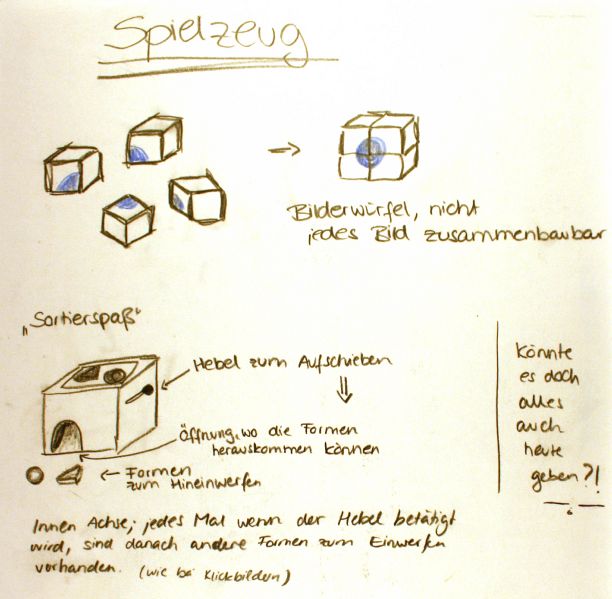 Spielzeug
Bilderwürfel, nicht
jedes Bild zusammenbaubar
„Sortierspaß"
Hebel zum Aufschieben
Öffnung, wo die Formen
herauskommen können
Formen
zum Hineinwerfen
Innen Achse; jedes Mal wenn der Hebel betätigt
wird, sind danach andere Formen zum Einwerfen
vorhanden. (wie bei Klickbildern)
könnte
es doch
alles
auch
heute
geben?!